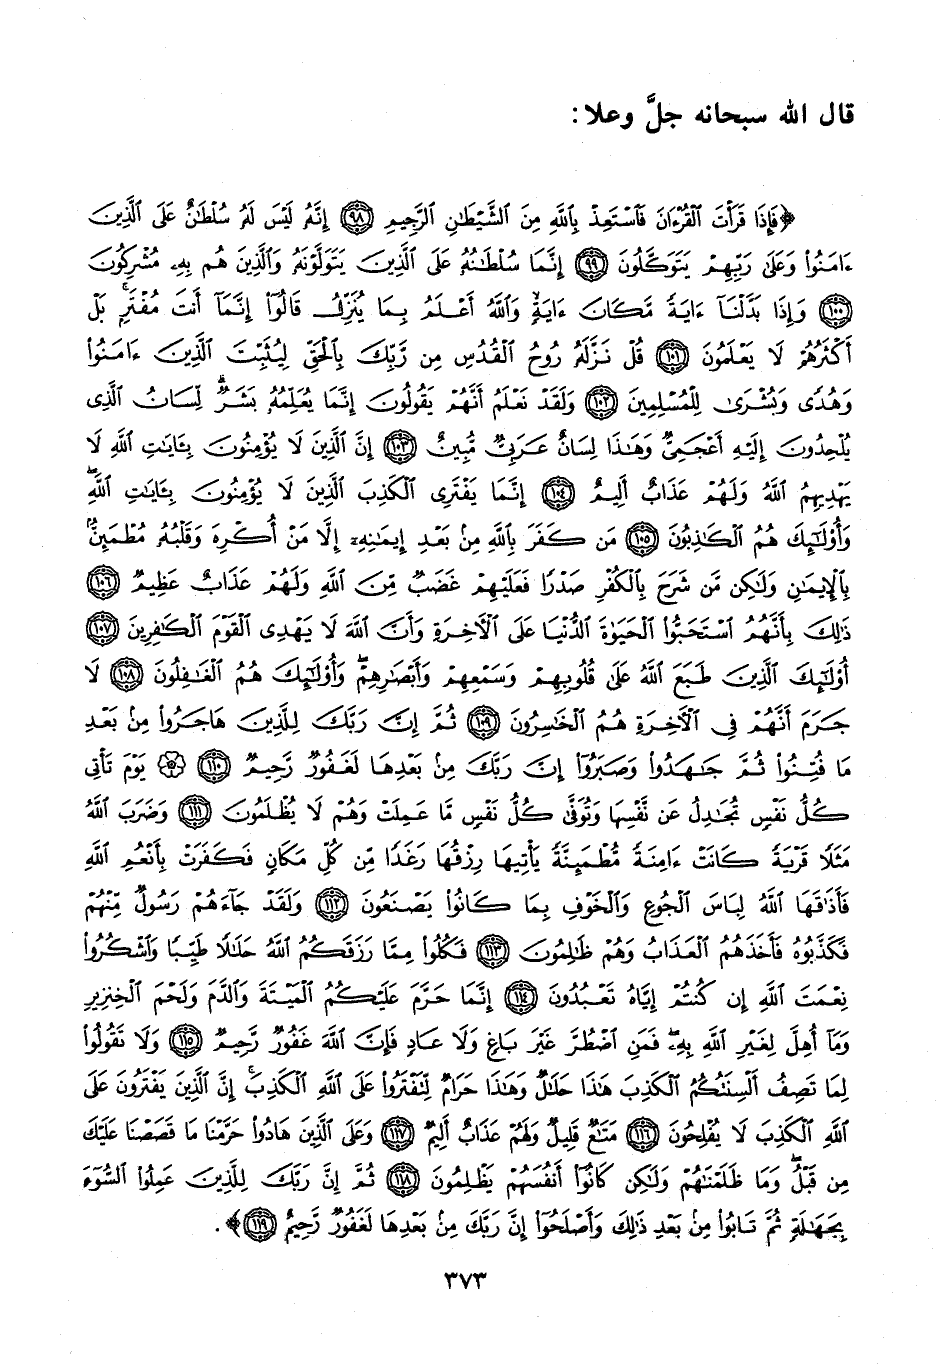 قال الله سبحانه جلَّ وعلا:
﴿فَإِذَا قَرَأْتَ الْقُرْءَانَ فَاسْتَعِذْ بِاللَّهِ مِنَ الشَّيْطَٰنِ الرَّجِيمِ ﴿٩٨﴾ إِنَّهُ لَيْسَ لَهُ سُلْطَٰنٌ عَلَى الَّذِينَ
ءَامَنُوا وَعَلَىٰ رَبِّهِمْ يَتَوَكَّلُونَ ﴿٩٩﴾ إِنَّمَا سُلْطَٰنُهُ عَلَى الَّذِينَ يَتَوَلَّوْنَهُ وَالَّذِينَ هُم بِهِ مُشْرِكُونَ
﴿١٠٠﴾ وَإِذَا بَدَّلْنَا ءَايَةً مَّكَانَ ءَايَةٍ وَاللَّهُ أَعْلَمُ بِمَا يُنَزِّلُ قَالُوا إِنَّمَا أَنتَ مُفْتَرٍ بَلْ
أَكْثَرُهُمْ لَا يَعْلَمُونَ ﴿١٠١﴾ قُلْ نَزَّلَهُ رُوحُ الْقُدُسِ مِن رَّبِّكَ بِالْحَقِّ لِيُثَبِّتَ الَّذِينَ ءَامَنُوا
وَهُدًى وَبُشْرَىٰ لِلْمُسْلِمِينَ ﴿١٠٢﴾ وَلَقَدْ نَعْلَمُ أَنَّهُمْ يَقُولُونَ إِنَّمَا يُعَلِّمُهُ بَشَرٌ لِّسَانُ الَّذِي
يُلْحِدُونَ إِلَيْهِ أَعْجَمِيٌّ وَهَٰذَا لِسَانٌ عَرَبِيٌّ مُّبِينٌ ﴿١٠٣﴾ إِنَّ الَّذِينَ لَا يُؤْمِنُونَ بِـَٔايَٰتِ اللَّهِ لَا
يَهْدِيهِمُ اللَّهُ وَلَهُمْ عَذَابٌ أَلِيمٌ ﴿١٠٤﴾ إِنَّمَا يَفْتَرِي الْكَذِبَ الَّذِينَ لَا يُؤْمِنُونَ بِـَٔايَٰتِ اللَّهِ
وَأُوْلَٰٓئِكَ هُمُ الْكَٰذِبُونَ ﴿١٠٥﴾ مَن كَفَرَ بِاللَّهِ مِنْ بَعْدِ إِيمَٰنِهِ إِلَّا مَنْ أُكْرِهَ وَقَلْبُهُ مُطْمَئِنٌّ
بِالْإِيمَٰنِ وَلَٰكِن مَّن شَرَحَ بِالْكُفْرِ صَدْرًا فَعَلَيْهِمْ غَضَبٌ مِّنَ اللَّهِ وَلَهُمْ عَذَابٌ عَظِيمٌ ﴿١٠٦﴾
ذَٰلِكَ بِأَنَّهُمُ اسْتَحَبُّوا الْحَيَوٰةَ الدُّنْيَا عَلَى الْأَخِرَةِ وَأَنَّ اللَّهَ لَا يَهْدِي الْقَوْمَ الْكَٰفِرِينَ ﴿١٠٧﴾
أُوْلَٰٓئِكَ الَّذِينَ طَبَعَ اللَّهُ عَلَىٰ قُلُوبِهِمْ وَسَمْعِهِمْ وَأَبْصَٰرِهِمْ وَأُوْلَٰٓئِكَ هُمُ الْغَٰفِلُونَ ﴿١٠٨﴾ لَا
جَرَمَ أَنَّهُمْ فِي الْأَخِرَةِ هُمُ الْخَٰسِرُونَ ﴿١٠٩﴾ ثُمَّ إِنَّ رَبَّكَ لِلَّذِينَ هَاجَرُوا مِنْ بَعْدِ
مَا فُتِنُوا ثُمَّ جَٰهَدُوا وَصَبَرُوا إِنَّ رَبَّكَ مِنْ بَعْدِهَا لَغَفُورٌ رَّحِيمٌ ﴿١١٠﴾ ۞ يَوْمَ تَأْتِي
كُلُّ نَفْسٍ تُجَٰدِلُ عَن نَّفْسِهَا وَتُوَفَّىٰ كُلُّ نَفْسٍ مَّا عَمِلَتْ وَهُمْ لَا يُظْلَمُونَ ﴿١١١﴾ وَضَرَبَ اللَّهُ
مَثَلًا قَرْيَةً كَانَتْ ءَامِنَةً مُّطْمَئِنَّةً يَأْتِيهَا رِزْقُهَا رَغَدًا مِّن كُلِّ مَكَانٍ فَكَفَرَتْ بِأَنْعُمِ اللَّهِ
فَأَذَٰقَهَا اللَّهُ لِبَاسَ الْجُوعِ وَالْخَوْفِ بِمَا كَانُوا يَصْنَعُونَ ﴿١١٢﴾ وَلَقَدْ جَآءَهُمْ رَسُولٌ مِّنْهُمْ
فَكَذَّبُوهُ فَأَخَذَهُمُ الْعَذَابُ وَهُمْ ظَٰلِمُونَ ﴿١١٣﴾ فَكُلُوا مِمَّا رَزَقَكُمُ اللَّهُ حَلَٰلًا طَيِّبًا وَاشْكُرُوا
نِعْمَتَ اللَّهِ إِن كُنتُمْ إِيَّاهُ تَعْبُدُونَ ﴿١١٤﴾ إِنَّمَا حَرَّمَ عَلَيْكُمُ الْمَيْتَةَ وَالدَّمَ وَلَحْمَ الْخِنزِيرِ
وَمَآ أُهِلَّ لِغَيْرِ اللَّهِ بِهِ فَمَنِ اضْطُرَّ غَيْرَ بَاغٍ وَلَا عَادٍ فَإِنَّ اللَّهَ غَفُورٌ رَّحِيمٌ ﴿١١٥﴾ وَلَا تَقُولُوا
لِمَا تَصِفُ أَلْسِنَتُكُمُ الْكَذِبَ هَٰذَا حَلَٰلٌ وَهَٰذَا حَرَامٌ لِّتَفْتَرُوا عَلَى اللَّهِ الْكَذِبَ إِنَّ الَّذِينَ يَفْتَرُونَ عَلَى
اللَّهِ الْكَذِبَ لَا يُفْلِحُونَ ﴿١١٦﴾ مَتَٰعٌ قَلِيلٌ وَلَهُمْ عَذَابٌ أَلِيمٌ ﴿١١٧﴾ وَعَلَى الَّذِينَ هَادُوا حَرَّمْنَا مَا قَصَصْنَا عَلَيْكَ
مِن قَبْلُ وَمَا ظَلَمْنَٰهُمْ وَلَٰكِن كَانُوا أَنفُسَهُمْ يَظْلِمُونَ ﴿١١٨﴾ ثُمَّ إِنَّ رَبَّكَ لِلَّذِينَ عَمِلُوا السُّوٓءَ
بِجَهَٰلَةٍ ثُمَّ تَابُوا مِنْ بَعْدِ ذَٰلِكَ وَأَصْلَحُوا إِنَّ رَبَّكَ مِنْ بَعْدِهَا لَغَفُورٌ رَّحِيمٌ ﴿١١٩﴾﴾.
٣٧٣